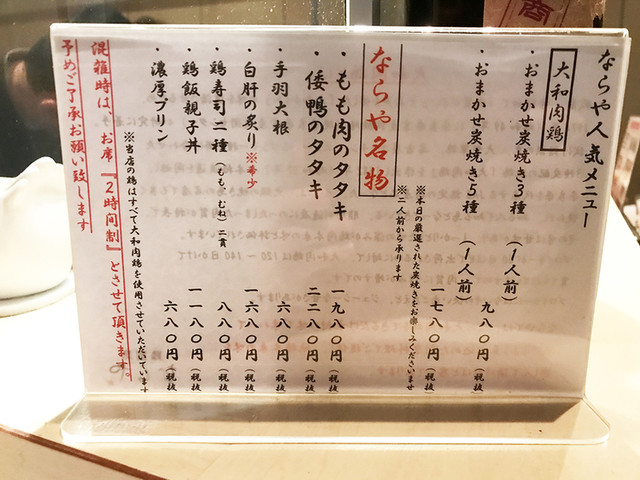 ならや人気メニュー
大和肉鶏
・おまかせ炭焼き3種(1人前) 九八〇円(税抜
・おまかせ炭焼き5種(1人前) 一七八〇円(税抜
※本日の厳選された炭焼きをお楽しみくださいませ
※二人前から承ります
ならや名物
・もも肉のタタキ 一九八〇円(税抜
・倭鴨のタタキ 二二八〇円(税抜
・手羽大根 六八〇円(税抜
・白肝の炙り※希少 一六八〇円(税抜
・鶏寿司二種(もも、むね)二貫 八八〇円(税抜
・鶏飯親子丼 一一八〇円(税抜
・濃厚プリン 六八〇円(税抜
※当店の鶏はすべて大和肉鶏を使用させていただいています
混雑時は、お席『2時間制』とさせて頂きます。
予めご了承お願い致します
商